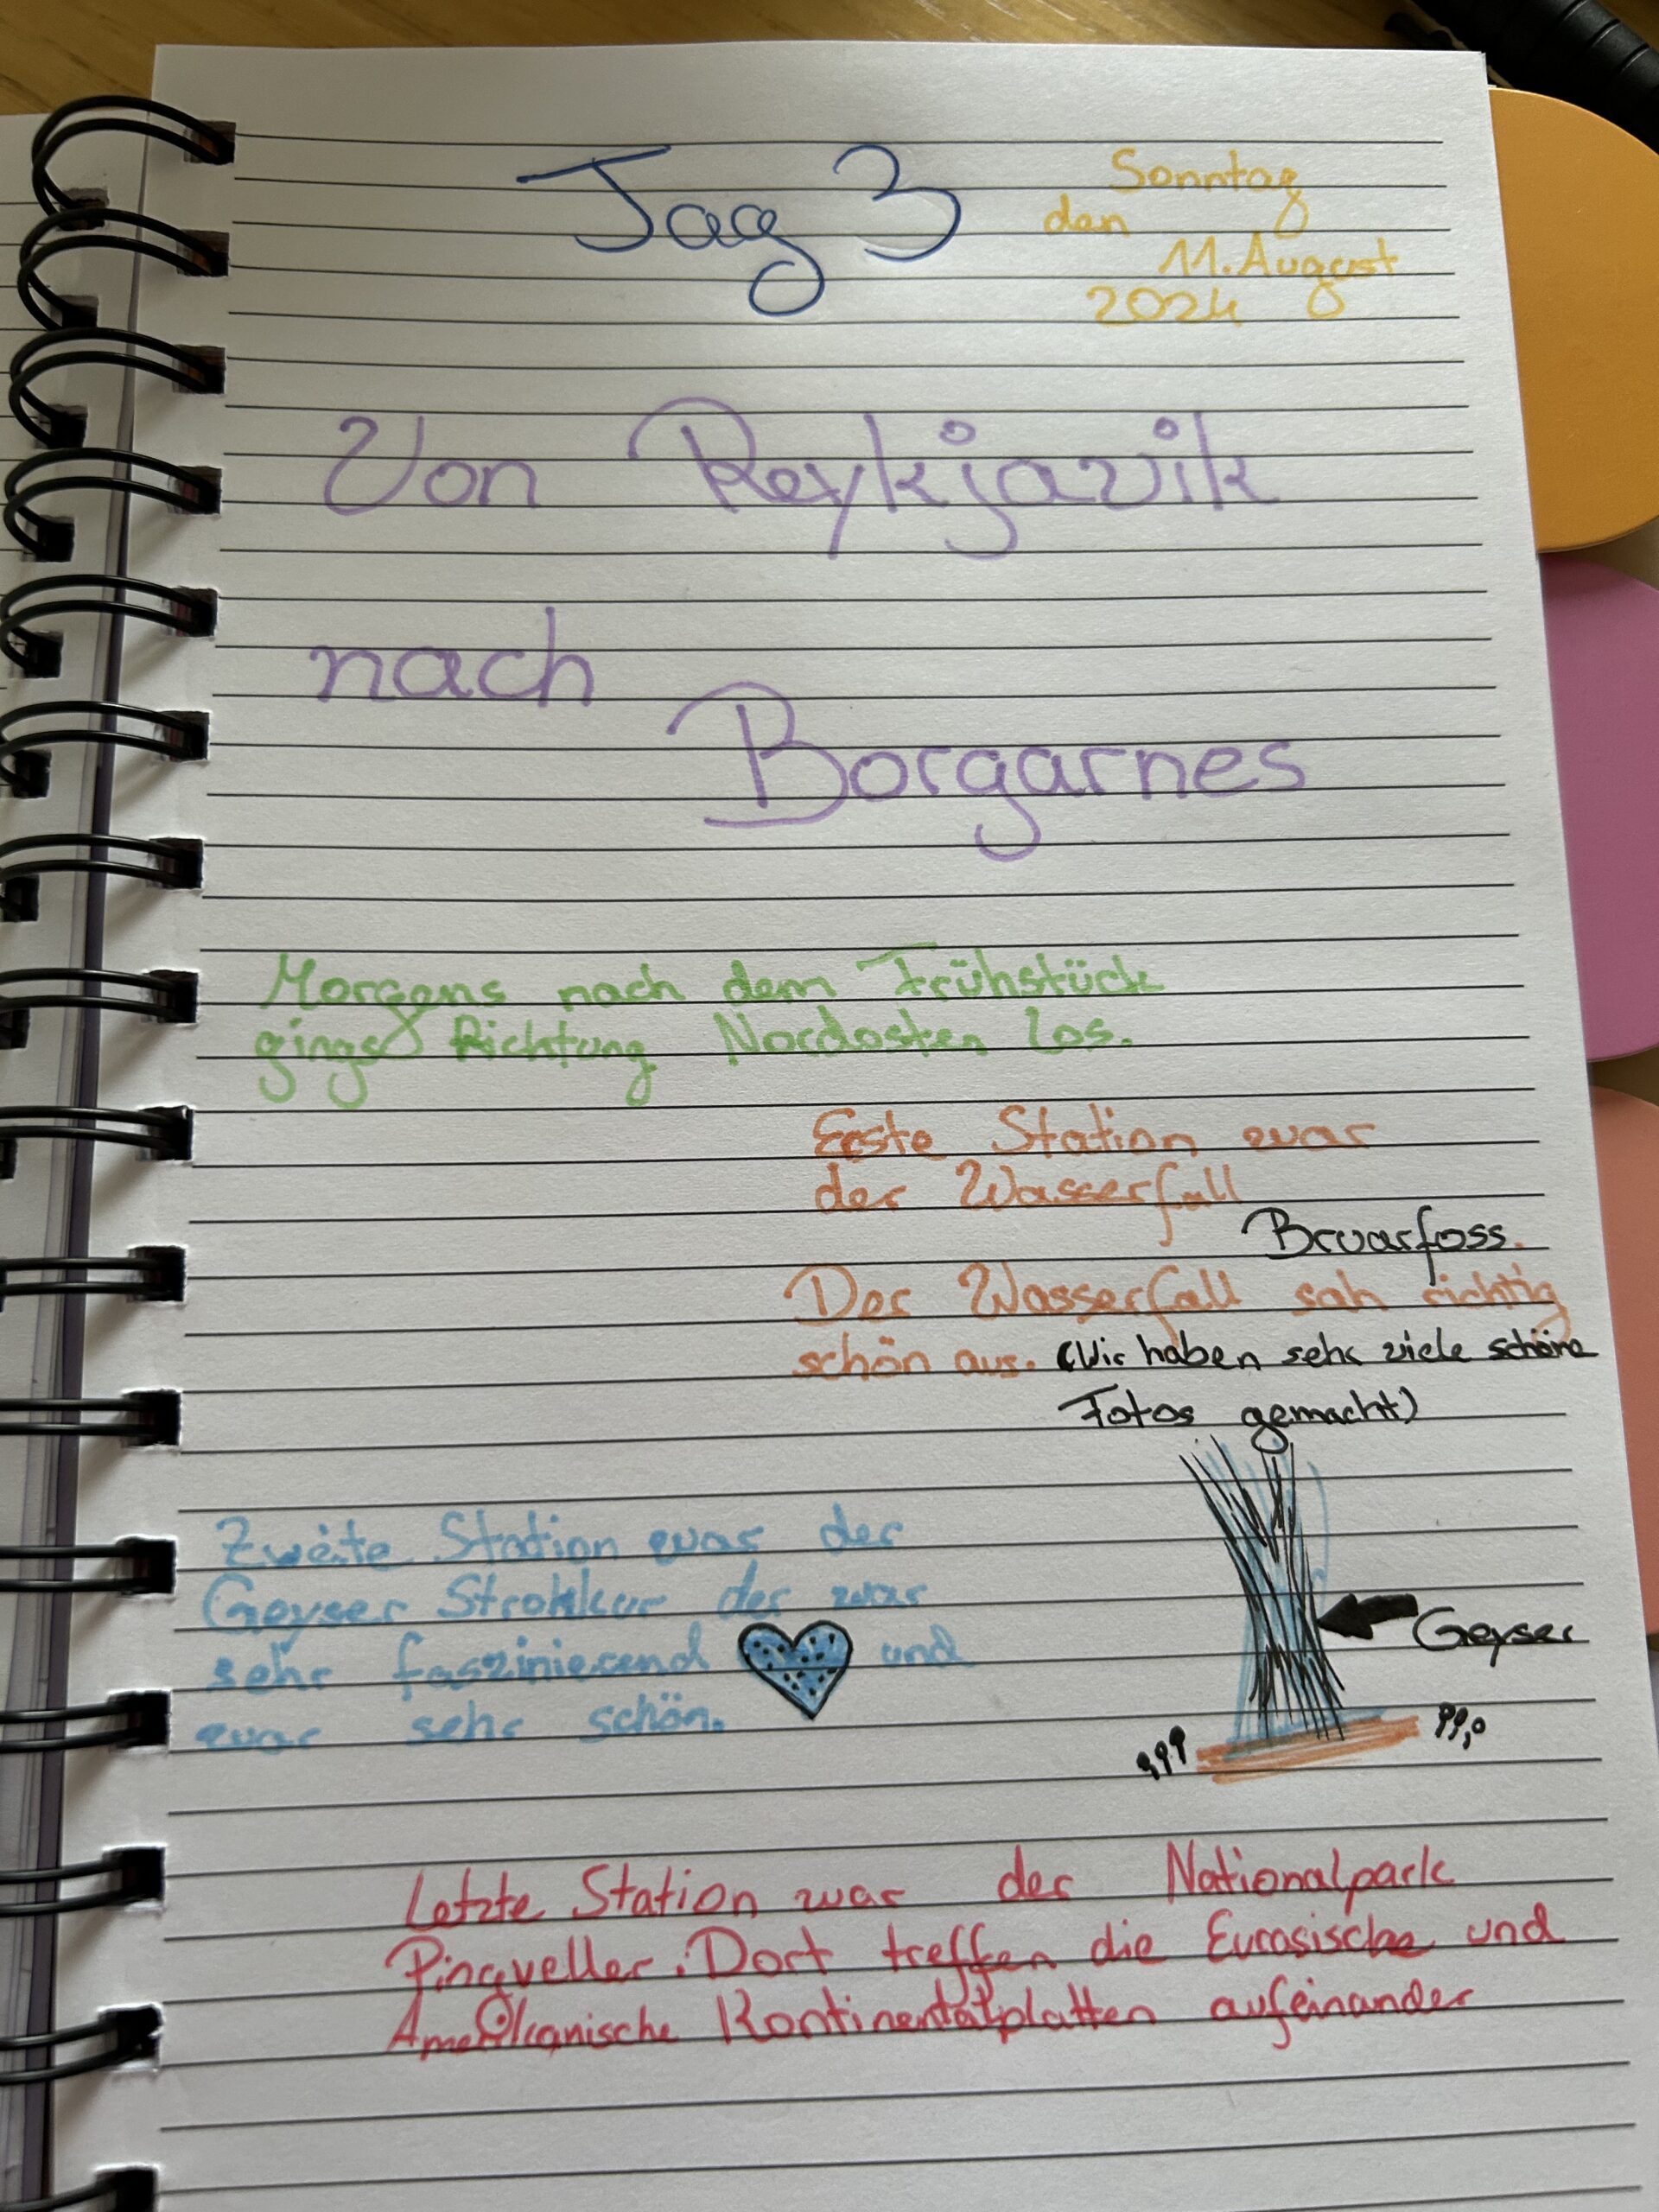 Tag 3
Sonntag
den
11. August
2024
Von Reykjavik
nach
Borgarnes
Morgens nach dem Frühstück
gings Richtung Nordosten los.
Erste Station war
der Wasserfall
Bruarfoss.
Der Wasserfall sah richtig
schön aus. (Wir haben sehr viele schöne
Fotos gemacht)
Zweite Station war der
Geyser Strokkur der war
sehr faszinierend und
war sehr schön.
Geyser
Letzte Station war der Nationalpark
Pingveller. Dort treffen die Eurasische und
Amerikanische Kontinentalplatten aufeinander